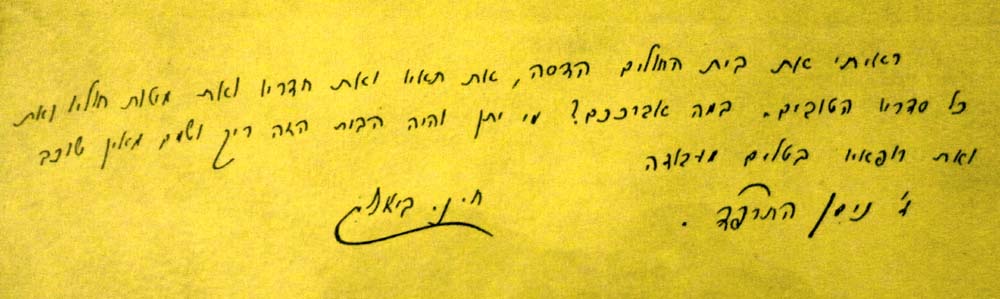 ראיתי את בית החולים הדסה, את תאיו ואת חדריו ואת מיטות חוליו ואת
כל סדריו הטובים. במה אברככם? מי יתן והיה הבית הזה ריק ושמם מאין שוכב
ואת רופאיו בטלים מעבודה
ג' ניסן התרפד.
ח. נ. ביאליק